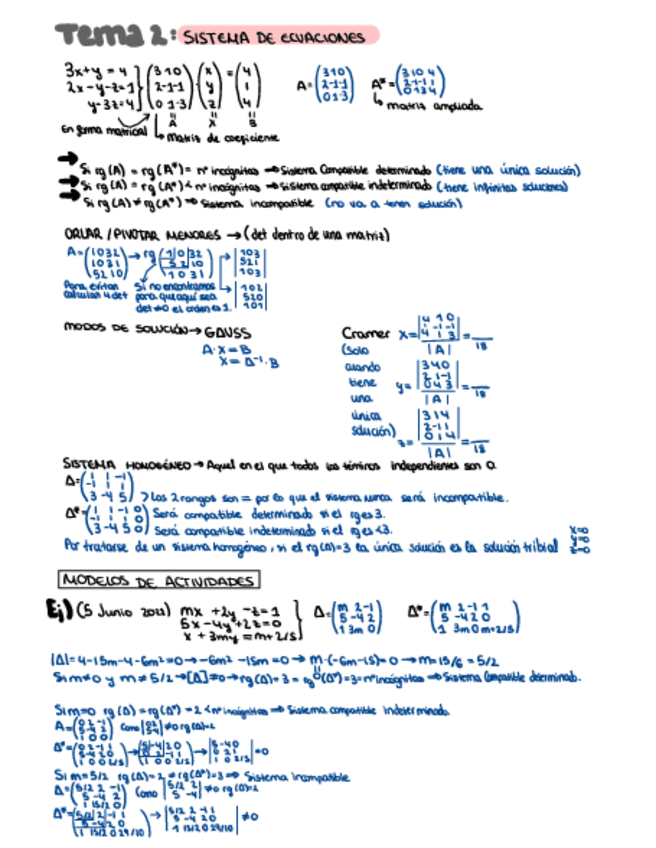 Tema 2: SISTEMA DE ECUACIONES
3x+y = 4
2x-y-z=1
y-3z=4
(3 1 0
2 -1 -1
0 1 -3) (x
y
z) = (4
1
4)
A X B
A=(3 1 0
2 -1 -1
0 1 -3)
A*=(3 1 0 4
2 -1 -1 1
0 1 3 4)
matriz ampliada
En forma matricial
matriz de coeficiente
→ Si rg(A) = rg(A*) = nº incógnitas → Sistema Compatible determinado (tiene una única solución)
→ Si rg(A) = rg(A*) < nº incógnitas → Sistema compatible indeterminado (tiene infinitas soluciones)
→ Si rg(A) ≠ rg(A*) → Sistema incompatible (no va a tener solución)
ORLAR / PIVOTAR MENORES → (det dentro de una matriz)
A=(1 0 3 2
1 0 3 1
5 2 1 0) → rg (1 0 3 2
5 2 1 0
1 0 3 1)
|1 0 3
5 2 1
1 0 3|
|1 0 2
5 2 0
1 0 1|
Para evitar
calcular 4 det
Si no encontramos
para que aquí sea
det ≠0 el orden es 1.
MODOS DE SOLUCIÓN → GAUSS
A·X=B
X= A⁻¹·B
Cramer
(solo
cuando
tiene
una
única
solución)
x= |4 1 0
4 -1 -1
1 3| / |A| = /18
y= |3 4 0
2 1 -1
0 4 3| / |A| = /18
z= |3 1 4
2 -1 1
0 1 4| / |A| = /18
SISTEMA HOMOGÉNEO → Aquel en el que todos los términos independientes son 0.
A=(1 1 -1
-1 1 1
3 -4 5) > Los 2 rangos son = por lo que el sistema nunca será incompatible.
A*=(1 1 -1 0
-1 1 1 0
3 -4 5 0) Será compatible determinado si el rg es 3.
Será compatible indeterminado si el rg es <3.
Por tratarse de un sistema homogéneo, si el rg(A)=3 la única solución es la solución tribial
x=0
y=0
z=0
MODELOS DE ACTIVIDADES
Ej) (5 Junio 2022)
mx +2y -z=1
5x-4y+2z=0
x + 3my = m+2/5
A=(m 2 -1
5 -4 2
1 3m 0)
A*=(m 2 -1 1
5 -4 2 0
1 3m 0 m+2/5)
|A|=4-15m-4-6m²=0 → -6m²-15m=0 → m·(-6m-15)=0 → m=15/6=5/2
Si m≠0 y m≠5/2 → [A]≠0 → rg(A)=3 = rg(A*)=3=nº incógnitas → Sistema Compatible determinado.
Si m=0 rg(A)=rg(A*)=2 < nº incógnitas → Sistema compatible indeterminado
A=(0 2 -1
5 -4 2
1 0 0) Como |0 2
5 -4| ≠0 rg(A)=2
A*=(0 2 -1 1
5 -4 2 0
1 0 0 2/5)
|5 -4 0
0 2 1
1 0 2/5| =0
Si m=5/2 rg(A)=2 ≠ rg(A*)=3 → Sistema incompatible
A=(5/2 2 -1
5 -4 2
1 15/2 0) Como |5/2 2
5 -4| ≠0 rg(A)=2
A*=(5/2 2 -1 1
5 -4 2 0
1 15/2 0 29/10)
|5/2 2 -1 1
5 -4 2 0
1 15/2 0 29/10| ≠0